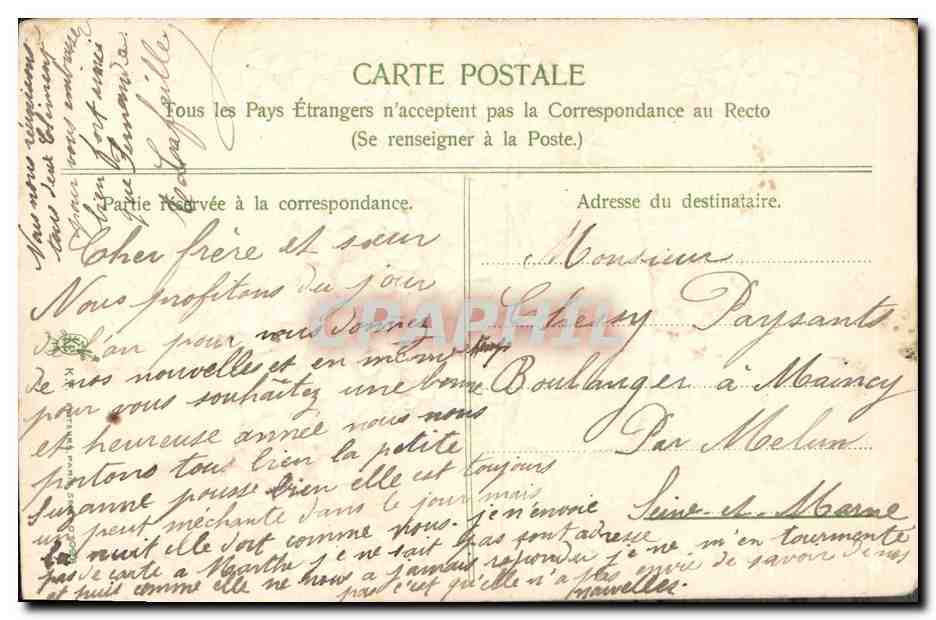 CARTE POSTALE
Tous les Pays Étrangers n'acceptent pas la Correspondance au Recto
(Se renseigner à la Poste.)
Partie réservée à la correspondance.
Cher frère et sœur
Nous profitons du jour
de l'an pour vous donnez
de nos nouvelles et en même temps
pour vous souhaitez une bonne
et heureuse année nous nous
portons tous bien la petite
Suzanne pousse bien elle est toujours
un peut méchante dans le jour mais
la nuit elle dort comme nous. je n'envoie
pas de carte a Marthe je ne sait pas sont adresse
et puis comme elle ne nous a jamais repondu je ne m'en tourmente
pas c'est qu'elle n'a pas envie de savoir de nos
nouvelles
Nous nous réunissons
tous deux
pour vous embrasser
bien fort ainsi
que Fernande
Adresse du destinataire.
Monsieur
Chessy Paysants
Boulanger à Maincy
Par Melun
Seine-et-Marne
CPAPHIL